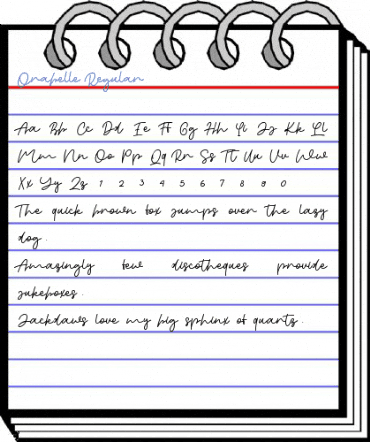 Qnabelle Regular
Aa Bb Cc Dd Ee Ff Gg Hh Ii Jj Kk Ll
Mm Nn Oo Pp Qq Rr Ss Tt Uu Vv Ww
Xx Yy Zz 1 2 3 4 5 6 7 8 9 0
The quick brown fox jumps over the lazy
dog.
Amazingly few discotheques provide
jukeboxes.
Jackdaws love my big sphinx of quartz.